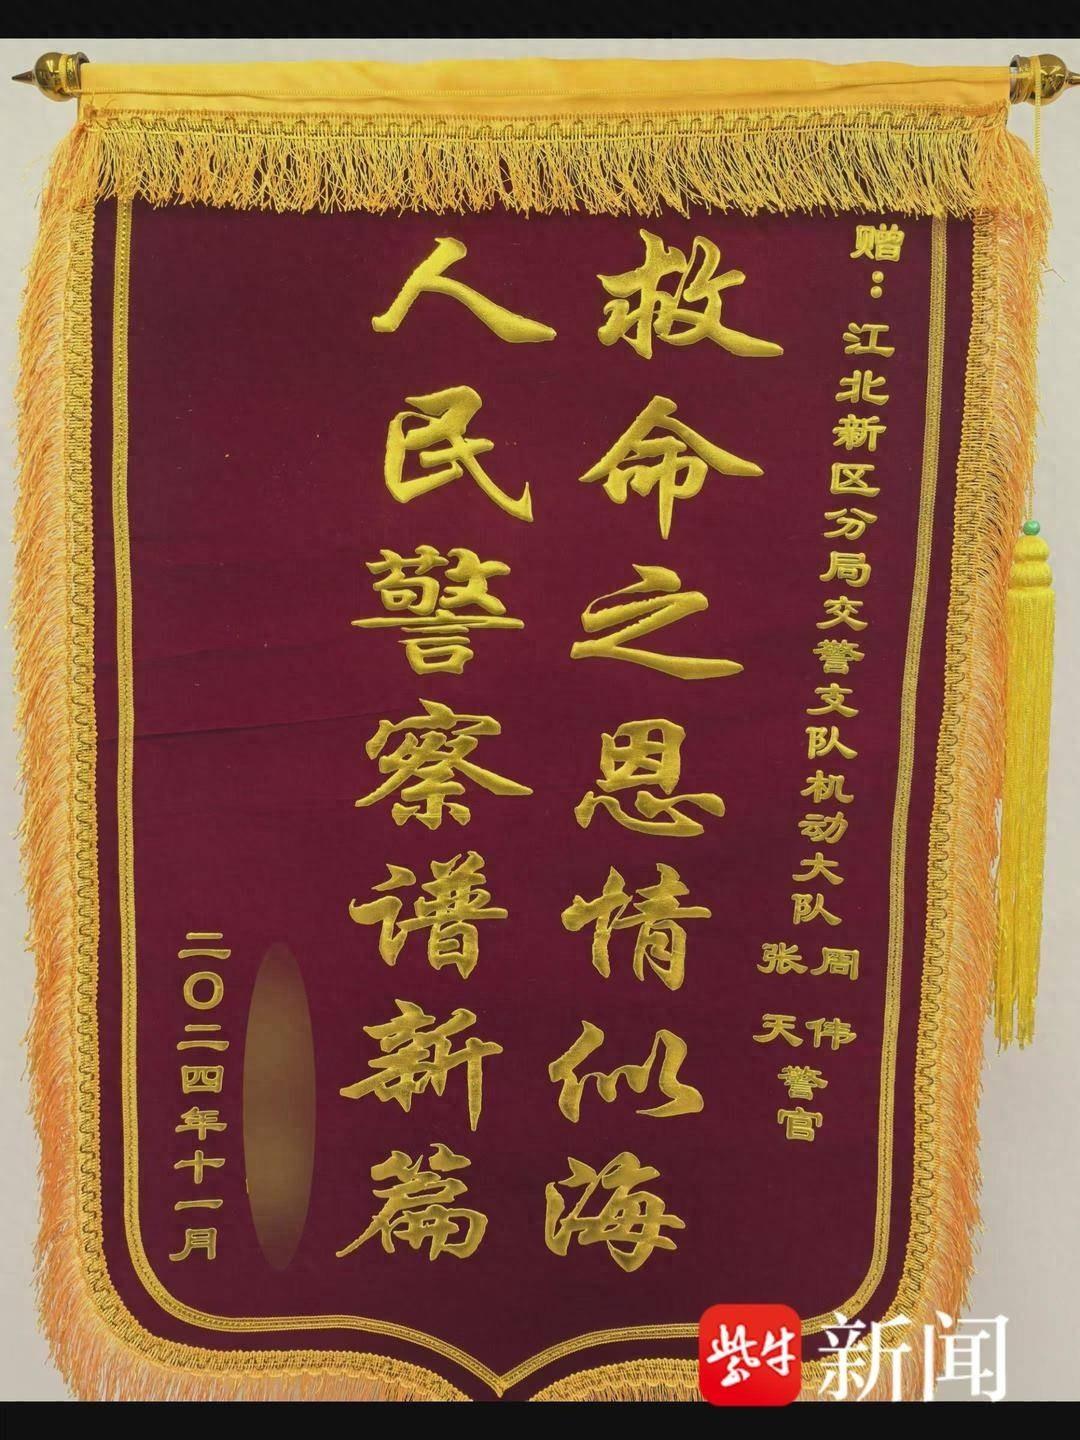 赠：江北新区分局交警支队机动大队
周伟
张天
警官
救命之恩情似海
人民警察谱新篇
二〇二四年十一月
紫牛新闻